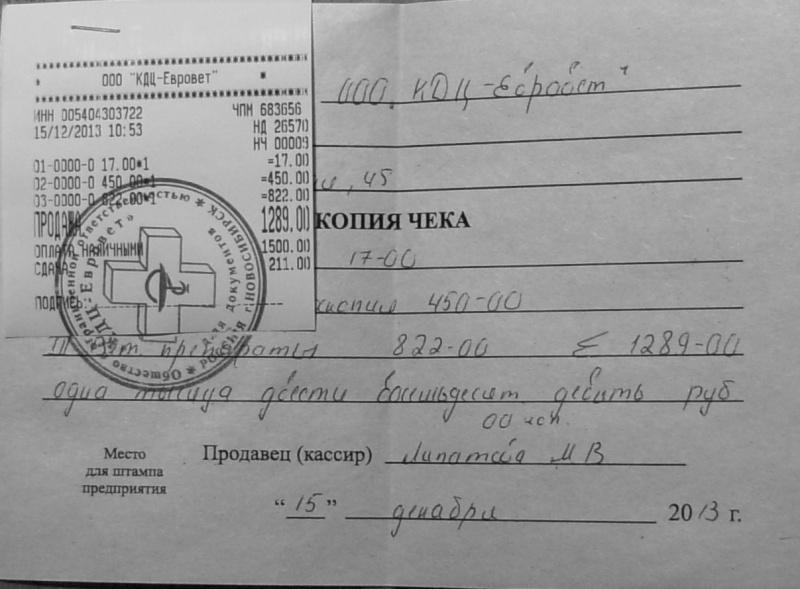 ООО "КДЦ-Евровет"
ИНН 005404303722 ЧПМ 683656
15/12/2013 10:53 НД 26570
НЧ 00009
01-0000-0 17.00*1 =17.00
02-0000-0 450.00*1 =450.00
03-0000-0 822.00*1 =822.00
ПРОДАЖА 1289.00
ОПЛАТА НАЛИЧНЫМИ 1500.00
СДАЧА 211.00
ПОДПИСЬ:
ООО "КДЦ-Евровет"
, 45
КОПИЯ ЧЕКА
17-00
450-00
препараты 822-00 Σ 1289-00
одна тысяча двести восемьдесят девять руб
00 коп.
Место
для штампа
предприятия
Продавец (кассир) Липатова М В
“ 15 ” декабря 2013 г.
ограниченной ответственностью * г.НОВОСИБИРСК
РОССИЯ * Общество с
"КДЦ-Евровет"
для документов